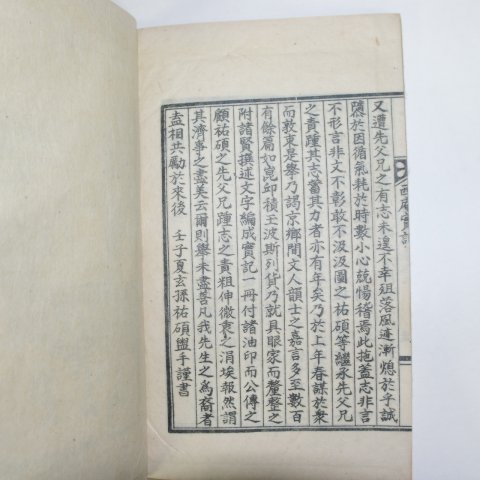 又遭先父兄之有志未遑不幸殂落風逢漸熄於乎誠
隳於因循氣耗於時數小心兢惕稽焉此抱盖志非言
不形言非文不彰敢不汲汲圖之祐碩等繼承先父兄
之責踵其志蓄其力者亦有年矣乃於上年春謀於衆
而敦束是擧乃謁京鄕間文人韻士之嘉言多至數百
有餘篇如崑邱積玉波斯列貨乃就具眼家而釐整之
附諸賢撰述文字編成實記一冊付諸油印而公傳之
顧祐碩之先父兄踵志之責粗伸微衷之涓埃報然謂
其濟事之盡美云爾則擧未盡善凡我先生之爲裔者
盍相共勵於來後 壬子夏玄孫祐碩盥手謹書
實記